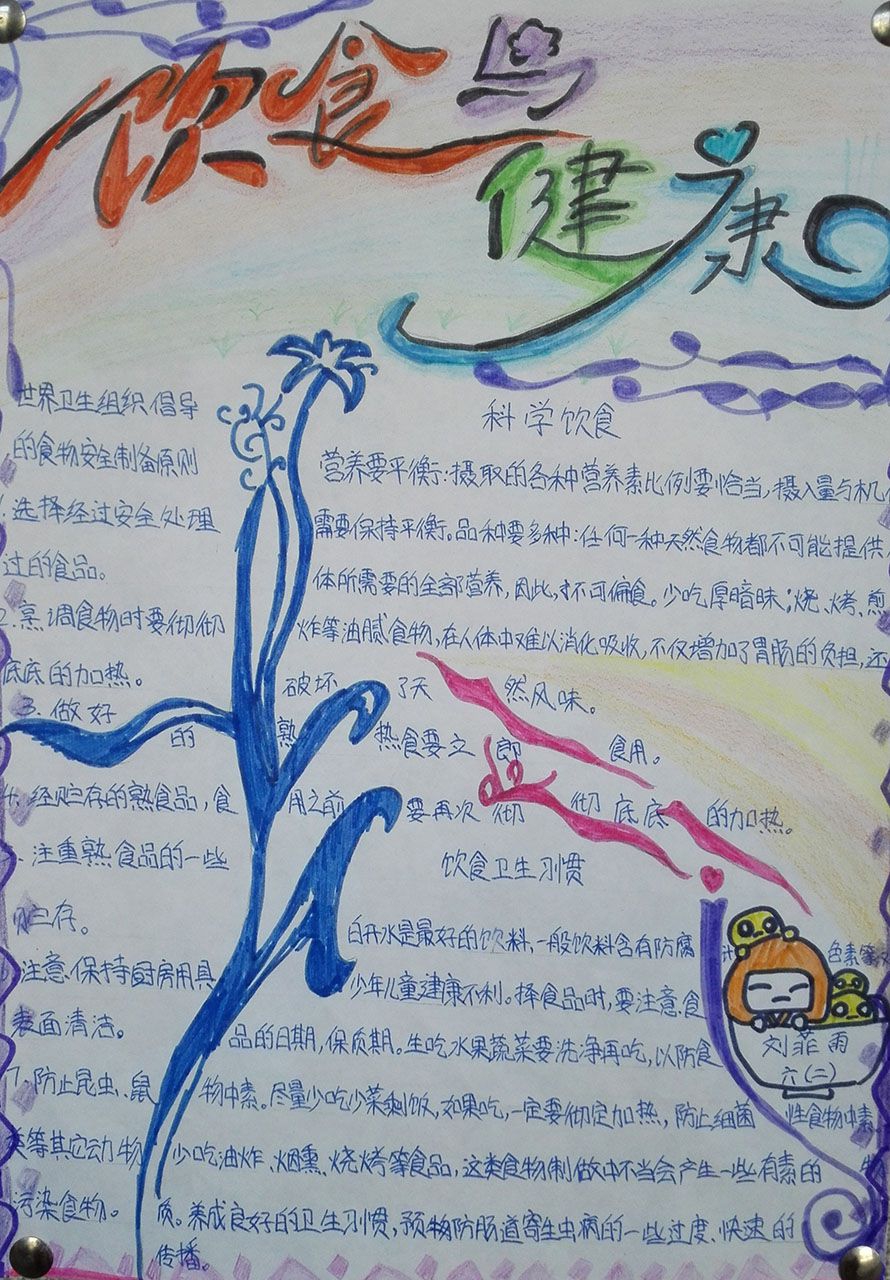 饮食与
健康
世界卫生组织倡导
的食物安全制备原则
1.选择经过安全处理
过的食品。
2.烹调食物时要彻彻
底底的加热。
3.做好
的 熟
4.经贮存的熟食品,食 用之前
注重熟食品的一些
贮存。
注意保持厨房用具
表面清洁。
7.防止昆虫、鼠
类等其它动物
污染食物。
科学饮食
营养要平衡:摄取的各种营养素比例要恰当,摄入量与机
需要保持平衡。品种要多种:任何一种天然食物都不可能提供
体所需要的全部营养,因此,不可偏食。少吃厚暗味;烧、烤、煎
炸等油腻食物,在人体中难以消化吸收,不仅增加了胃肠的负担,还
破坏 了天 然风味。
热食要立 即 食用。
要再次 彻 彻 底底 的加热。
饮食卫生习惯
白开水是最好的饮料,一般饮料含有防腐 色素等
少年儿童健康不利。择食品时,要注意食
品的日期,保质期。生吃水果蔬菜要洗净再吃,以防食
物中素。尽量少吃少菜剩饭,如果吃,一定要彻定加热,防止细菌 性食物中素
少吃油炸、烟熏、烧烤等食品,这类食物制做中不当会产生一些有素的
质。养成良好的卫生习惯,预物防肠道寄生虫病的一些过度、快速的
传播。
刘菲雨
六(二)